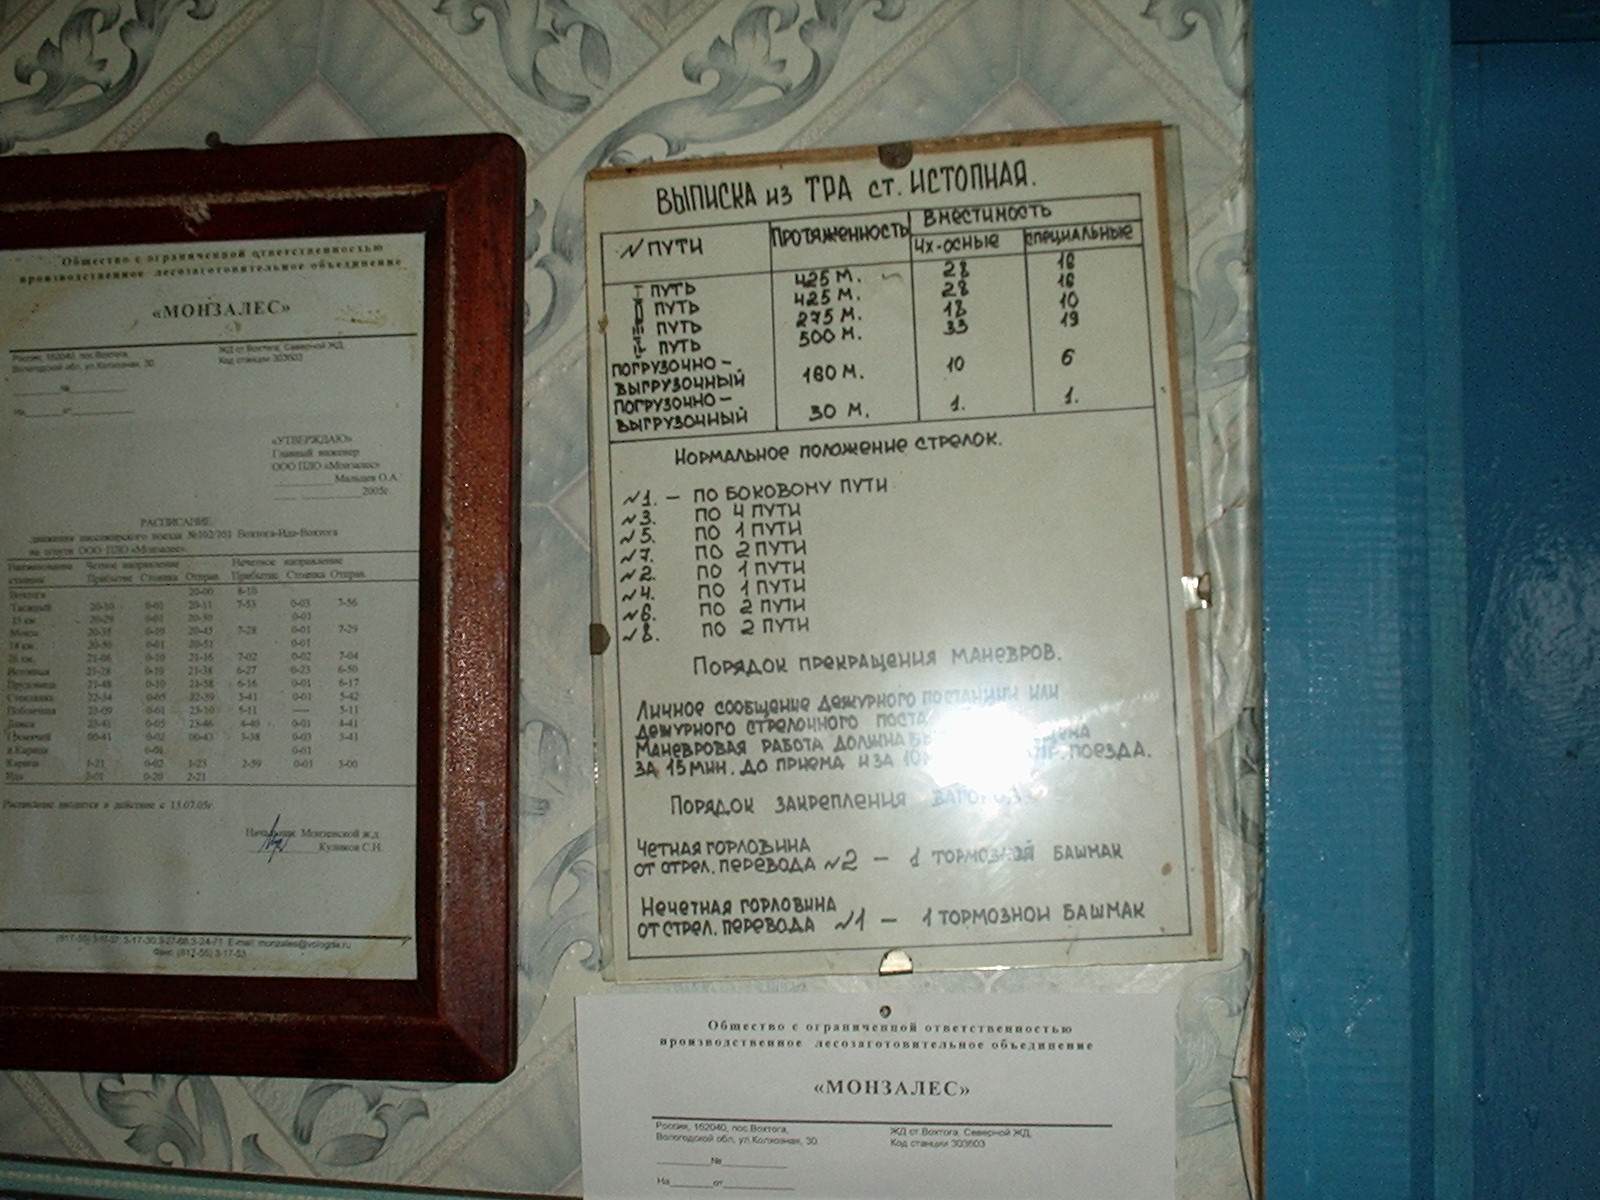 Общество с ограниченной ответственностью
производственное лесозаготовительное объединение
«МОНЗАЛЕС»
Россия, 162040, пос.Вохтога,
Вологодской обл, ул.Колхозная, 30
ЖД ст.Вохтога Северной ЖД,
Код станции 303603
№
На от
«УТВЕРЖДАЮ»
Главный инженер
ООО ПЛО «Монзалес»
Мальцев О.А.
2005г.
РАСПИСАНИЕ
движения пассажирского поезда №102/101 Вохтога-Ида-Вохтога
на ООО ПЛО «Монзалес»
Наименование Четное направление Нечетное направление
станции Прибытие Стоянка Отправ. Прибытие Стоянка Отправ.
Вохтога 20-00 8-10
20-10 0-01 20-11 7-53 0-03 7-56
13 км 20-29 0-01 20-30 0-01
Монза 20-35 0-10 20-45 7-28 0-01 7-29
20-50 0-01 20-51 0-01
21-06 0-10 21-16 7-02 0-02 7-04
Истопная 21-28 0-10 21-38 6-27 0-23 6-50
21-48 0-10 21-58 6-16 0-01 6-17
22-34 0-05 22-39 5-41 0-01 5-42
23-09 0-01 23-10 5-11 — 5-11
23-41 0-05 23-46 4-40 0-01 4-41
00-41 0-02 00-43 3-38 0-03 3-41
0-01 0-01
Карица 1-21 0-02 1-23 2-59 0-01 3-00
Ида 2-01 0-20 2-21
Расписание вводится в действие с 15.07.05г.
Начальник Монзенской ж.д.
Куликов С.Н.
E-mail: monzales@vologda.ru
Факс (817-55) 3-17-53
ВЫПИСКА ИЗ ТРА СТ. ИСТОПНАЯ.
N ПУТИ ПРОТЯЖЕННОСТЬ ВНЕСТИМОСТЬ
4Х-ОСНЫЕ СПЕЦИАЛЬНЫЕ
I ПУТЬ 425 М. 28 16
II ПУТЬ 425 М. 28 16
III ПУТЬ 275 М. 18 10
IV ПУТЬ 500 М. 33 19
ПОГРУЗОЧНО-
ВЫГРУЗОЧНЫЙ 160 М. 10 6
ПОГРУЗОЧНО-
ВЫГРУЗОЧНЫЙ 30 М. 1. 1.
НОРМАЛЬНОЕ ПОЛОЖЕНИЕ СТРЕЛОК.
N1. – ПО БОКОВОМУ ПУТИ
N3. ПО 4 ПУТИ
N5. ПО 1 ПУТИ
N7. ПО 2 ПУТИ
N2. ПО 1 ПУТИ
N4. ПО 1 ПУТИ
N6. ПО 2 ПУТИ
N8. ПО 2 ПУТИ
ПОРЯДОК ПРЕКРАЩЕНИЯ МАНЕВРОВ.
ЛИЧНОЕ СООБЩЕНИЕ ДЕЖУРНОГО ПО СТАНЦИИ ИЛИ
ДЕЖУРНОГО СТРЕЛОЧНОГО ПОСТА
МАНЕВРОВАЯ РАБОТА ДОЛЖНА
ЗА 15 МИН. ДО ПРИЕМА И ЗА ПОЕЗДА.
ПОРЯДОК ЗАКРЕПЛЕНИЯ
ЧЕТНАЯ ГОРЛОВИНА
ОТ СТРЕЛ. ПЕРЕВОДА N2 – 1 ТОРМОЗНОЙ БАШМАК
НЕЧЕТНАЯ ГОРЛОВИНА
ОТ СТРЕЛ. ПЕРЕВОДА N1 – 1 ТОРМОЗНОЙ БАШМАК
Общество с ограниченной ответственностью
производственное лесозаготовительное объединение
«МОНЗАЛЕС»
Россия, 162040, пос.Вохтога,
Вологодской обл, ул.Колхозная, 30
ЖД ст.Вохтога Северной ЖД,
Код станции 303603
№
На от